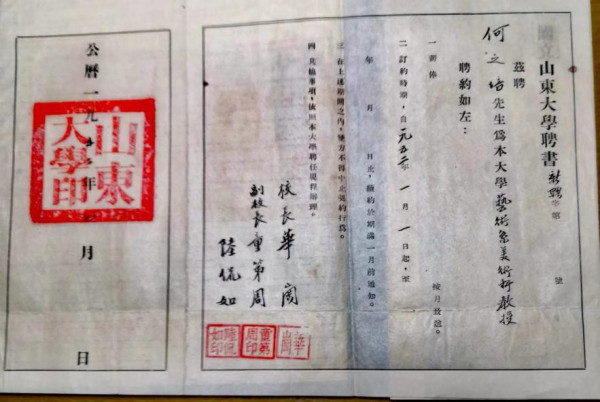 山東大學聘書 字第 號
茲聘
何之培先生為本大學藝術系美術科教授
聘約如左：
一 薪俸 按月致送。
二 訂約時期，自一九五二年一月一日起，至
年 月 日止，續約於期滿一月前通知。
三 在上述期間之內，雙方不得中止契約行為。
四 其他事項，依照本大學聘任規程辦理。
校長華崗
副校長童第周
陸侃如
華崗
童第周印
陸侃如印
公曆一九 年 月 日
山東大學印